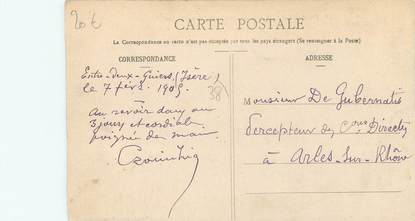 20€
CARTE POSTALE
La Correspondance au recto n'est pas acceptée par tous les pays étrangers (Se renseigner à la Poste)
CORRESPONDANCE
ADRESSE
Entre-deux-Guiers (Isère)
le 7 févr. 1905
38
au revoir dans
3 jours et cordiale
poignée de main
Monsieur De Gubernatis
Percepteur des Ctions Directes
à Arles-sur-Rhône